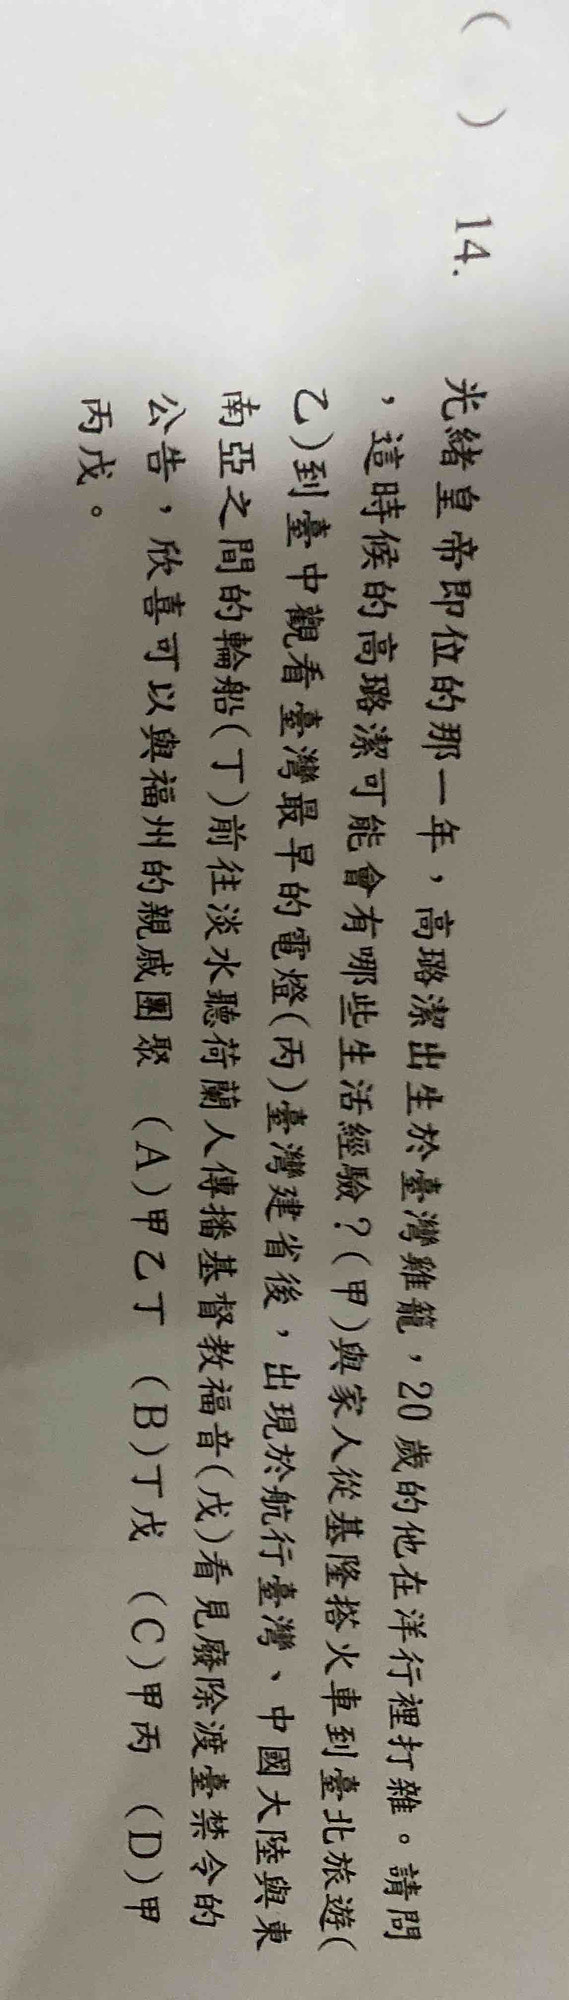 ( ) 14. 光緒皇帝即位的那一年，高璐潔出生於臺灣雞籠，20 歲的他在洋行裡打雜。請問
，這時候的高璐潔可能會有哪些生活經驗？(甲)與家人從基隆搭火車到臺北旅遊(
乙)到臺中觀看臺灣最早的電燈(丙)臺灣建省後，出現於航行臺灣、中國大陸與東
南亞之間的輪船(丁)前往淡水聽荷蘭人傳播基督教福音(戊)看見廢除渡臺禁令的
公告，欣喜可以與福州的親戚團聚 (A)甲乙丁 (B)丁戊 (C)甲丙 (D)甲
丙戊。